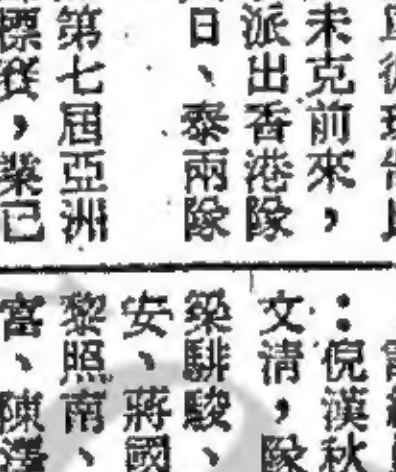 未克前來，
派出香港隊
日、泰兩隊
第七屆亞洲
標賽，業已
：倪漢秋
文清，隊
梁騑駿、
安、蔣國
黎照南、
富、陳澤